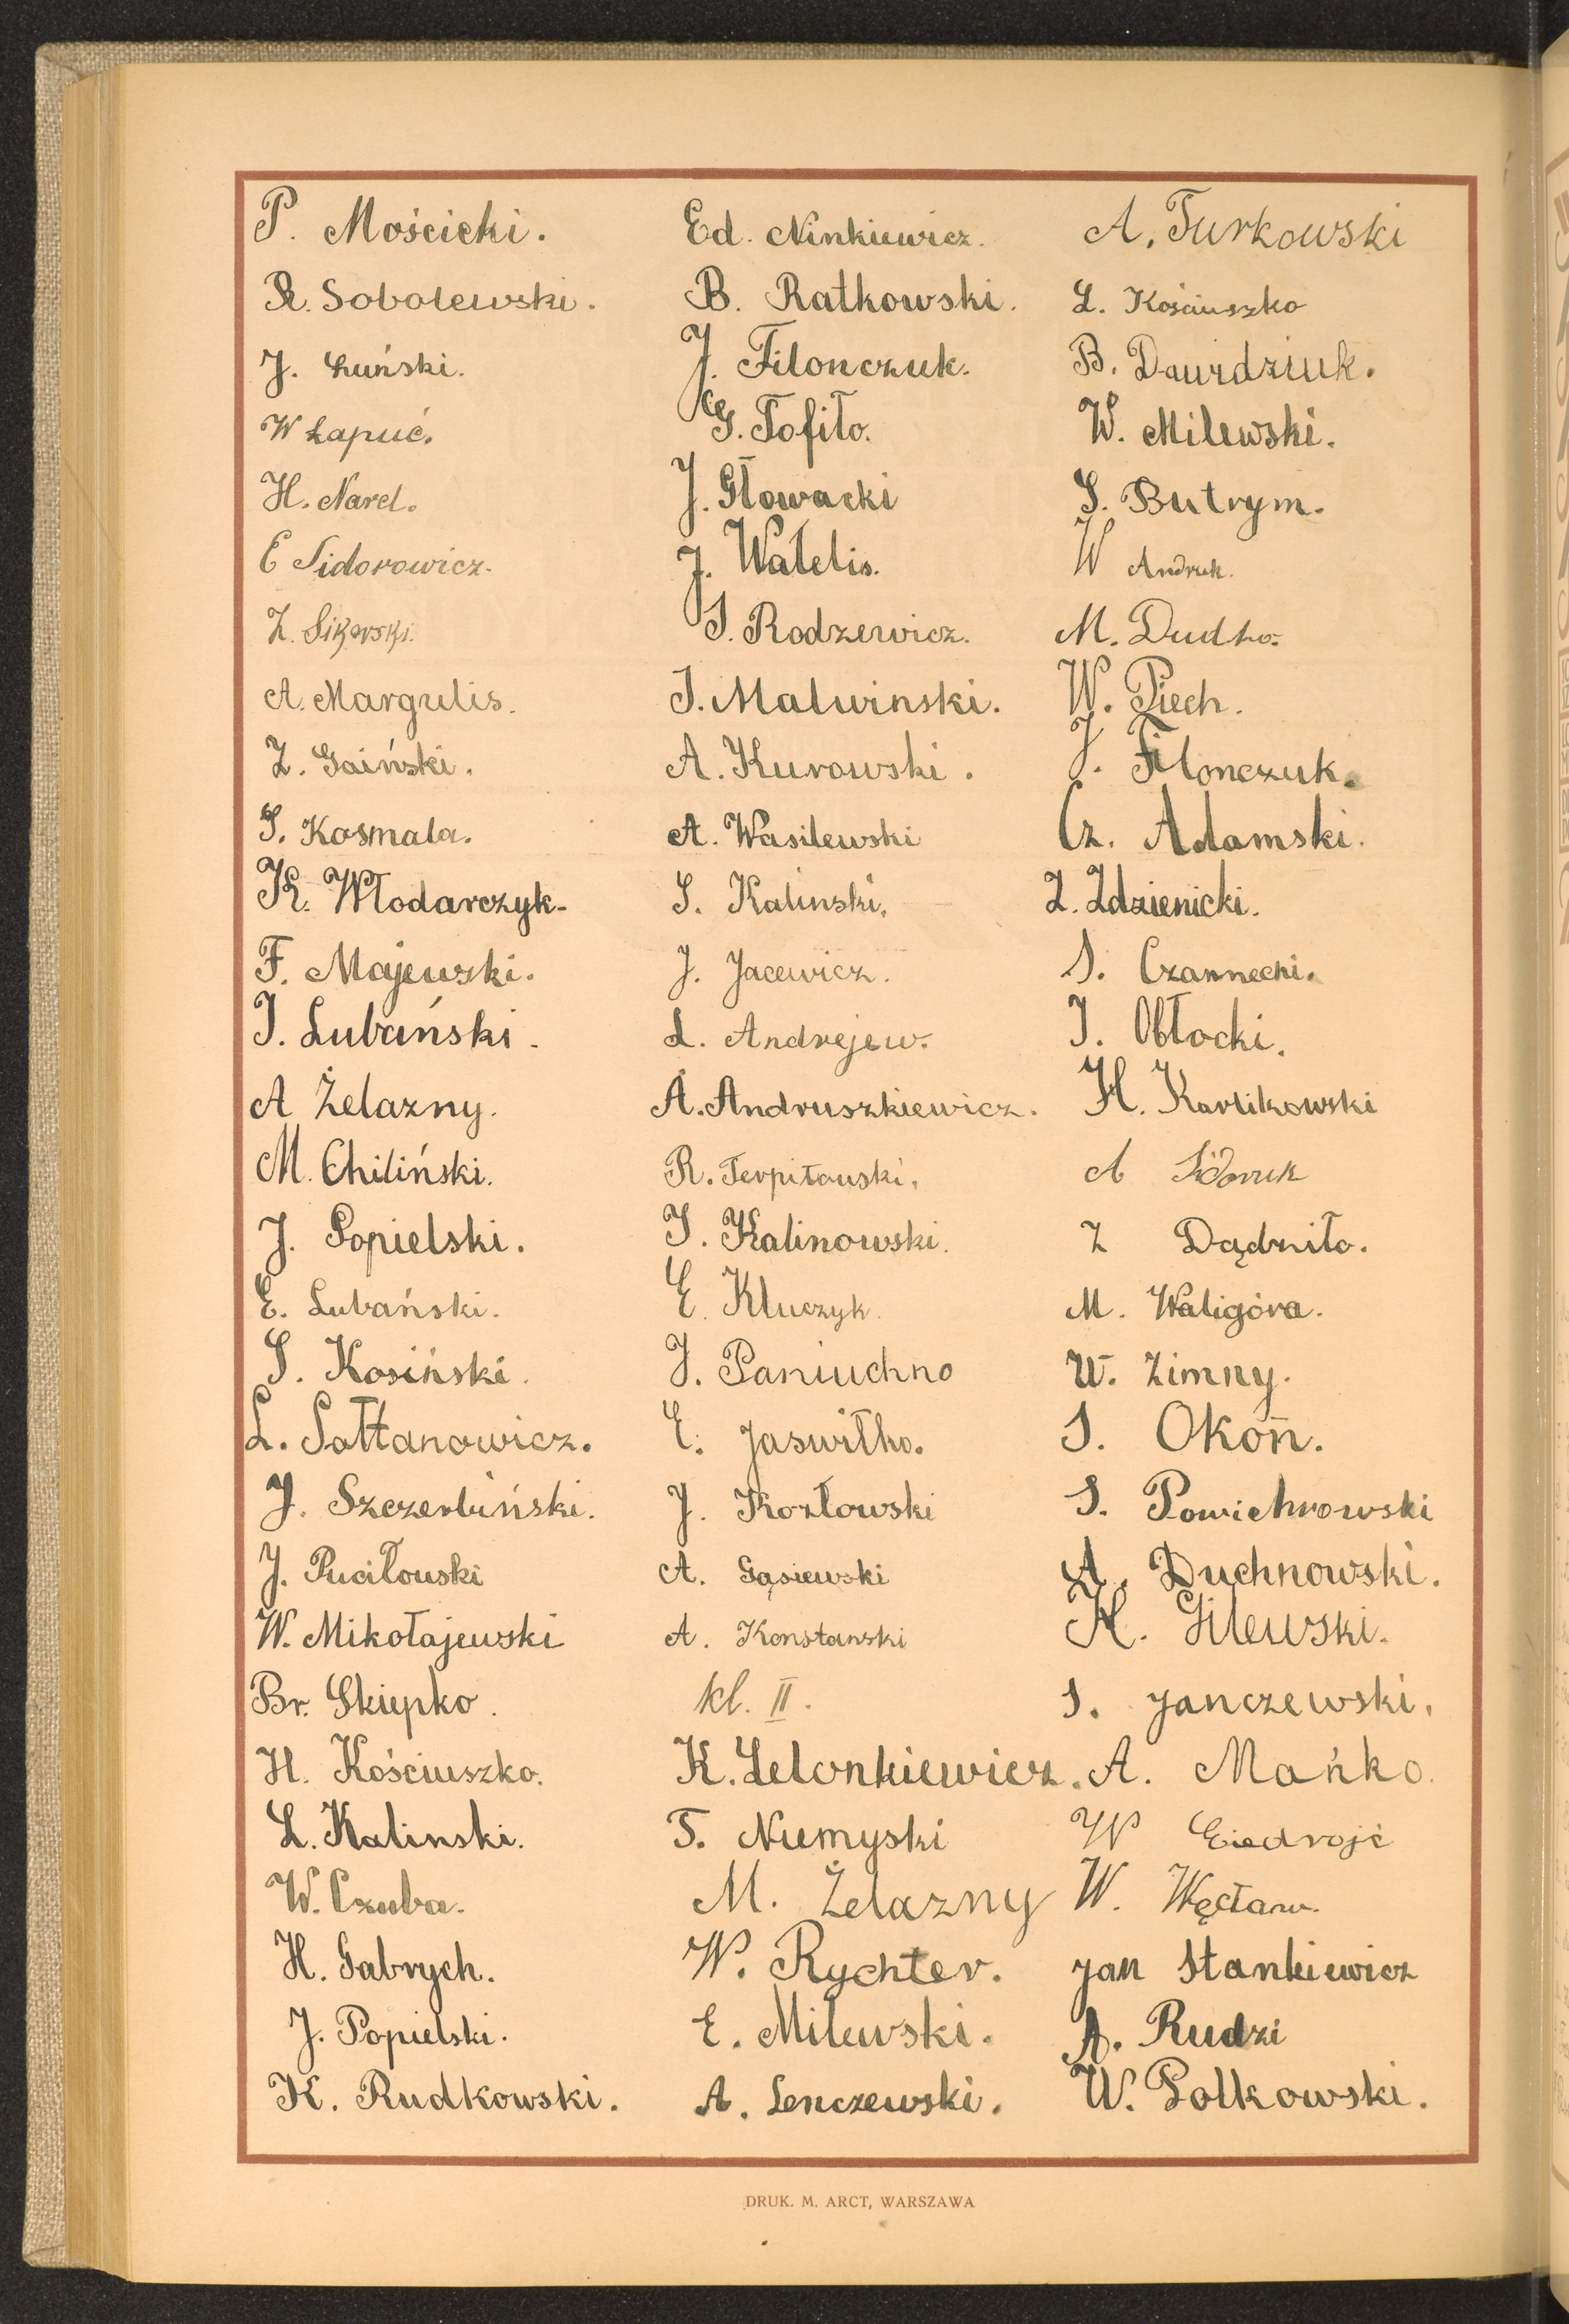 P. Mościcki.
R. Sobolewski.
J. Łuński.
W Łapuć.
H. Narel.
E Sidorowicz.
Z. Sikorski.
A. Margulis.
Z. Gaiński.
S. Kosmala.
K. Włodarczyk.
F. Majewski.
J. Lubański.
A Żelazny.
M. Chiliński.
J. Popielski.
E. Lubański.
S. Kosiński.
L. Sołtanowicz.
J. Szczerbiński.
J. Puciłowski
W. Mikołajewski
Br. Skiepko.
H. Kościuszko.
L. Kalinski.
W. Czuba.
H. Gabrych.
J. Popielski.
K. Rudkowski.
Ed. Ninkiewicz.
B. Ratkowski.
J. Filonczuk.
G. Tofiło.
J. Głowacki
J. Watelis.
S. Rodzewicz.
J. Malwinski.
A. Kurowski.
A. Wasilewski
S. Kalinski.
J. Jacewicz.
L. Andrejew.
A. Andruszkiewicz.
R. Terpiłowski.
J. Kalinowski.
E. Kluczyk.
J. Paniuchno
E. Jaswiłko.
J. Kozłowski
A. Gąsiewski
A. Konstanski
kl. II.
K. Lelonkiewicz.
T. Niemyski
M. Żelazny
W. Rychter.
E. Milewski.
A. Lenczewski.
A. Turkowski
L. Kościuszko
B. Dawidziuk.
W. Milewski.
S. Butrym.
W Andruk.
M. Dudko.
W. Piech.
J. Filonczuk.
Cz. Adamski.
Z. Zdzienicki.
S. Czarnecki.
J. Obłocki.
H. Karlikowski
A Sidoruk
Z Dądniło.
M. Waligóra.
W. Zimny.
S. Okoń.
S. Powichrowski
A. Duchnowski.
K. Gilewski.
S. Janczewski.
A. Mańko.
W Giedrojć
W. Węcław.
Jan Stankiewicz
A. Rudzi
W. Polkowski.
DRUK. M. ARCT, WARSZAWA